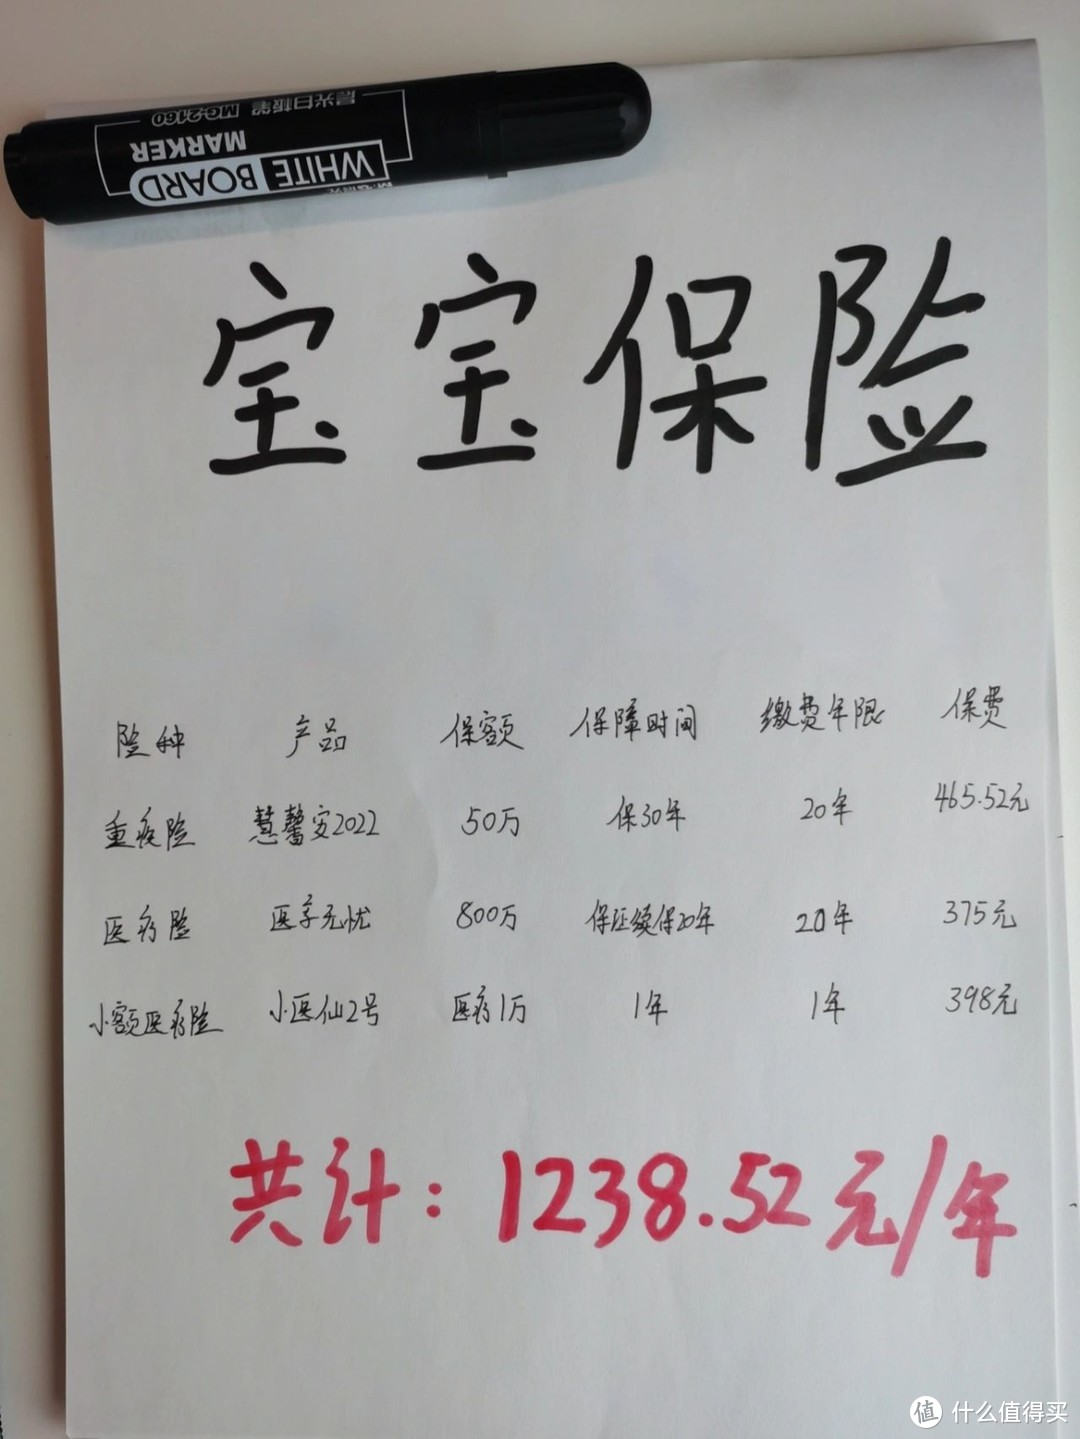 晨光白板笔 MG-2160
WHITE BOARD
MARKER
宝宝保险
险种 产品 保额 保障时间 缴费年限 保费
重疾险 慧馨安2022 50万 保30年 20年 465.52元
医疗险 医享无忧 800万 保证续保20年 20年 375元
小额医疗险 小医仙2号 医疗1万 1年 1年 398元
共计：1238.52元/年
值 什么值得买